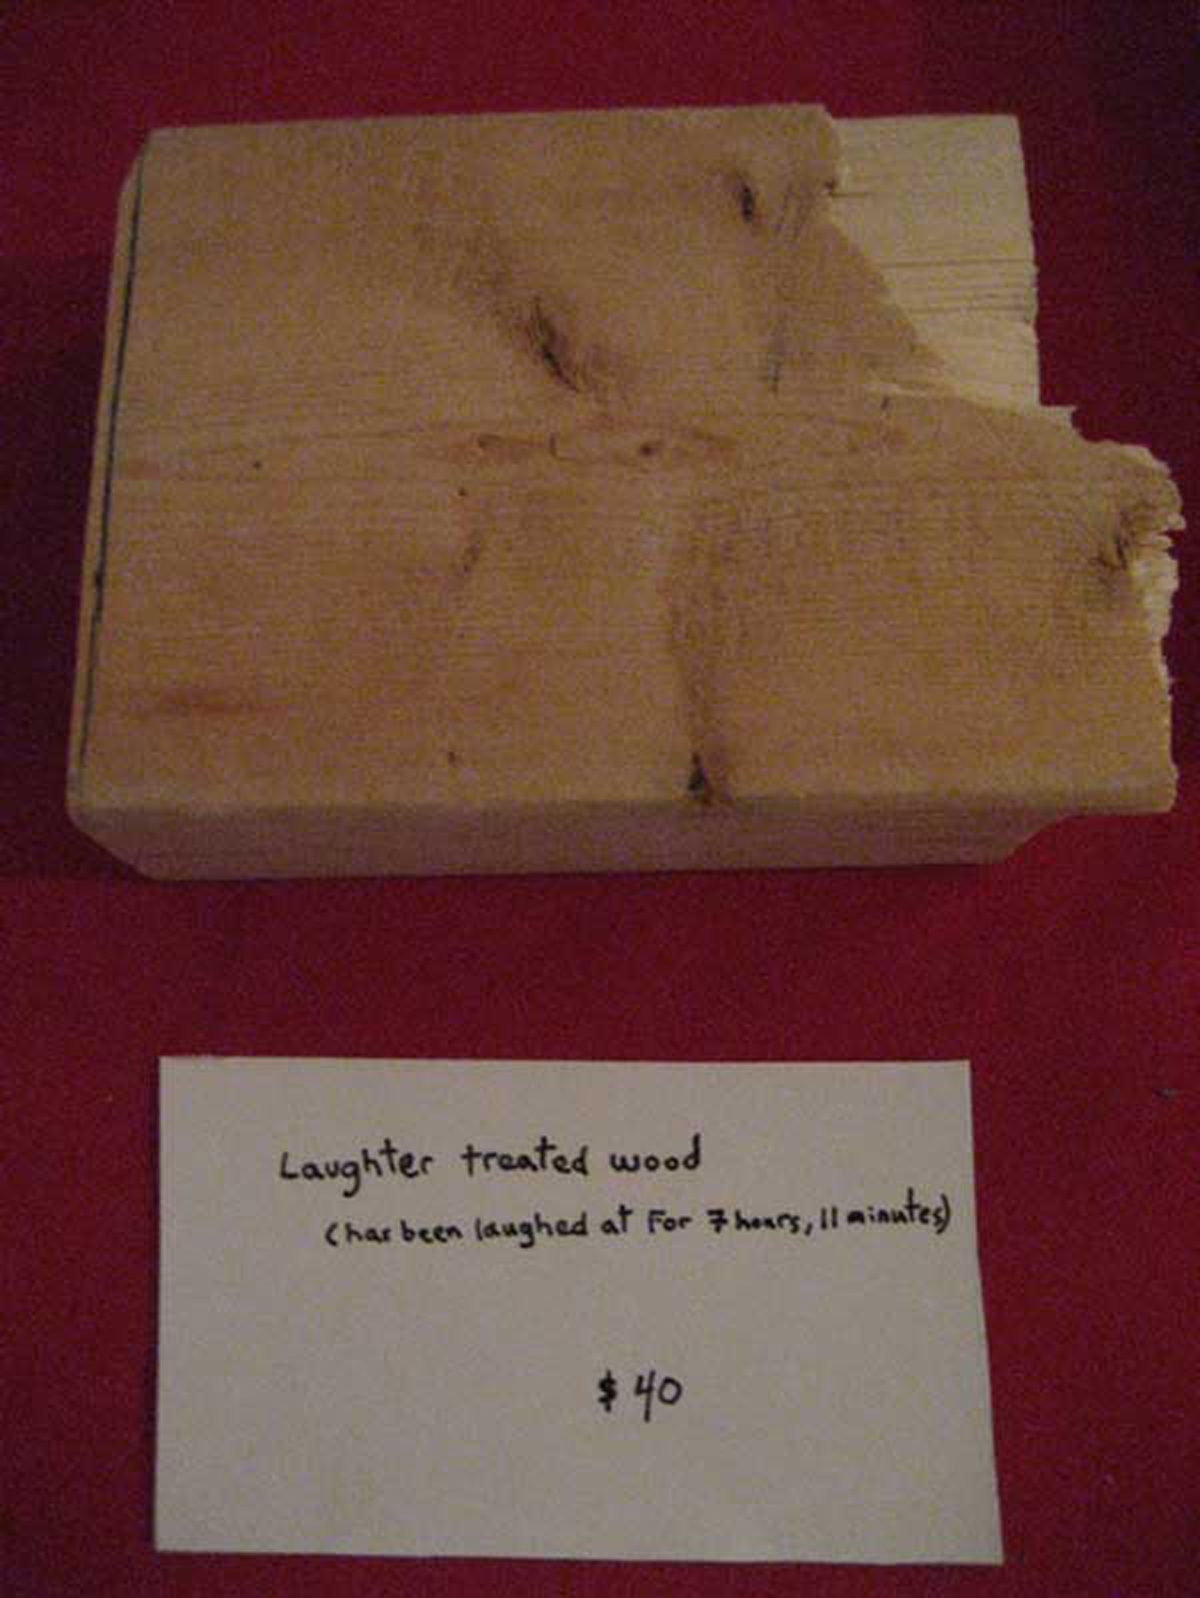 Laughter treated wood
(has been laughed at For 7 hours, 11 minutes)
$ 40